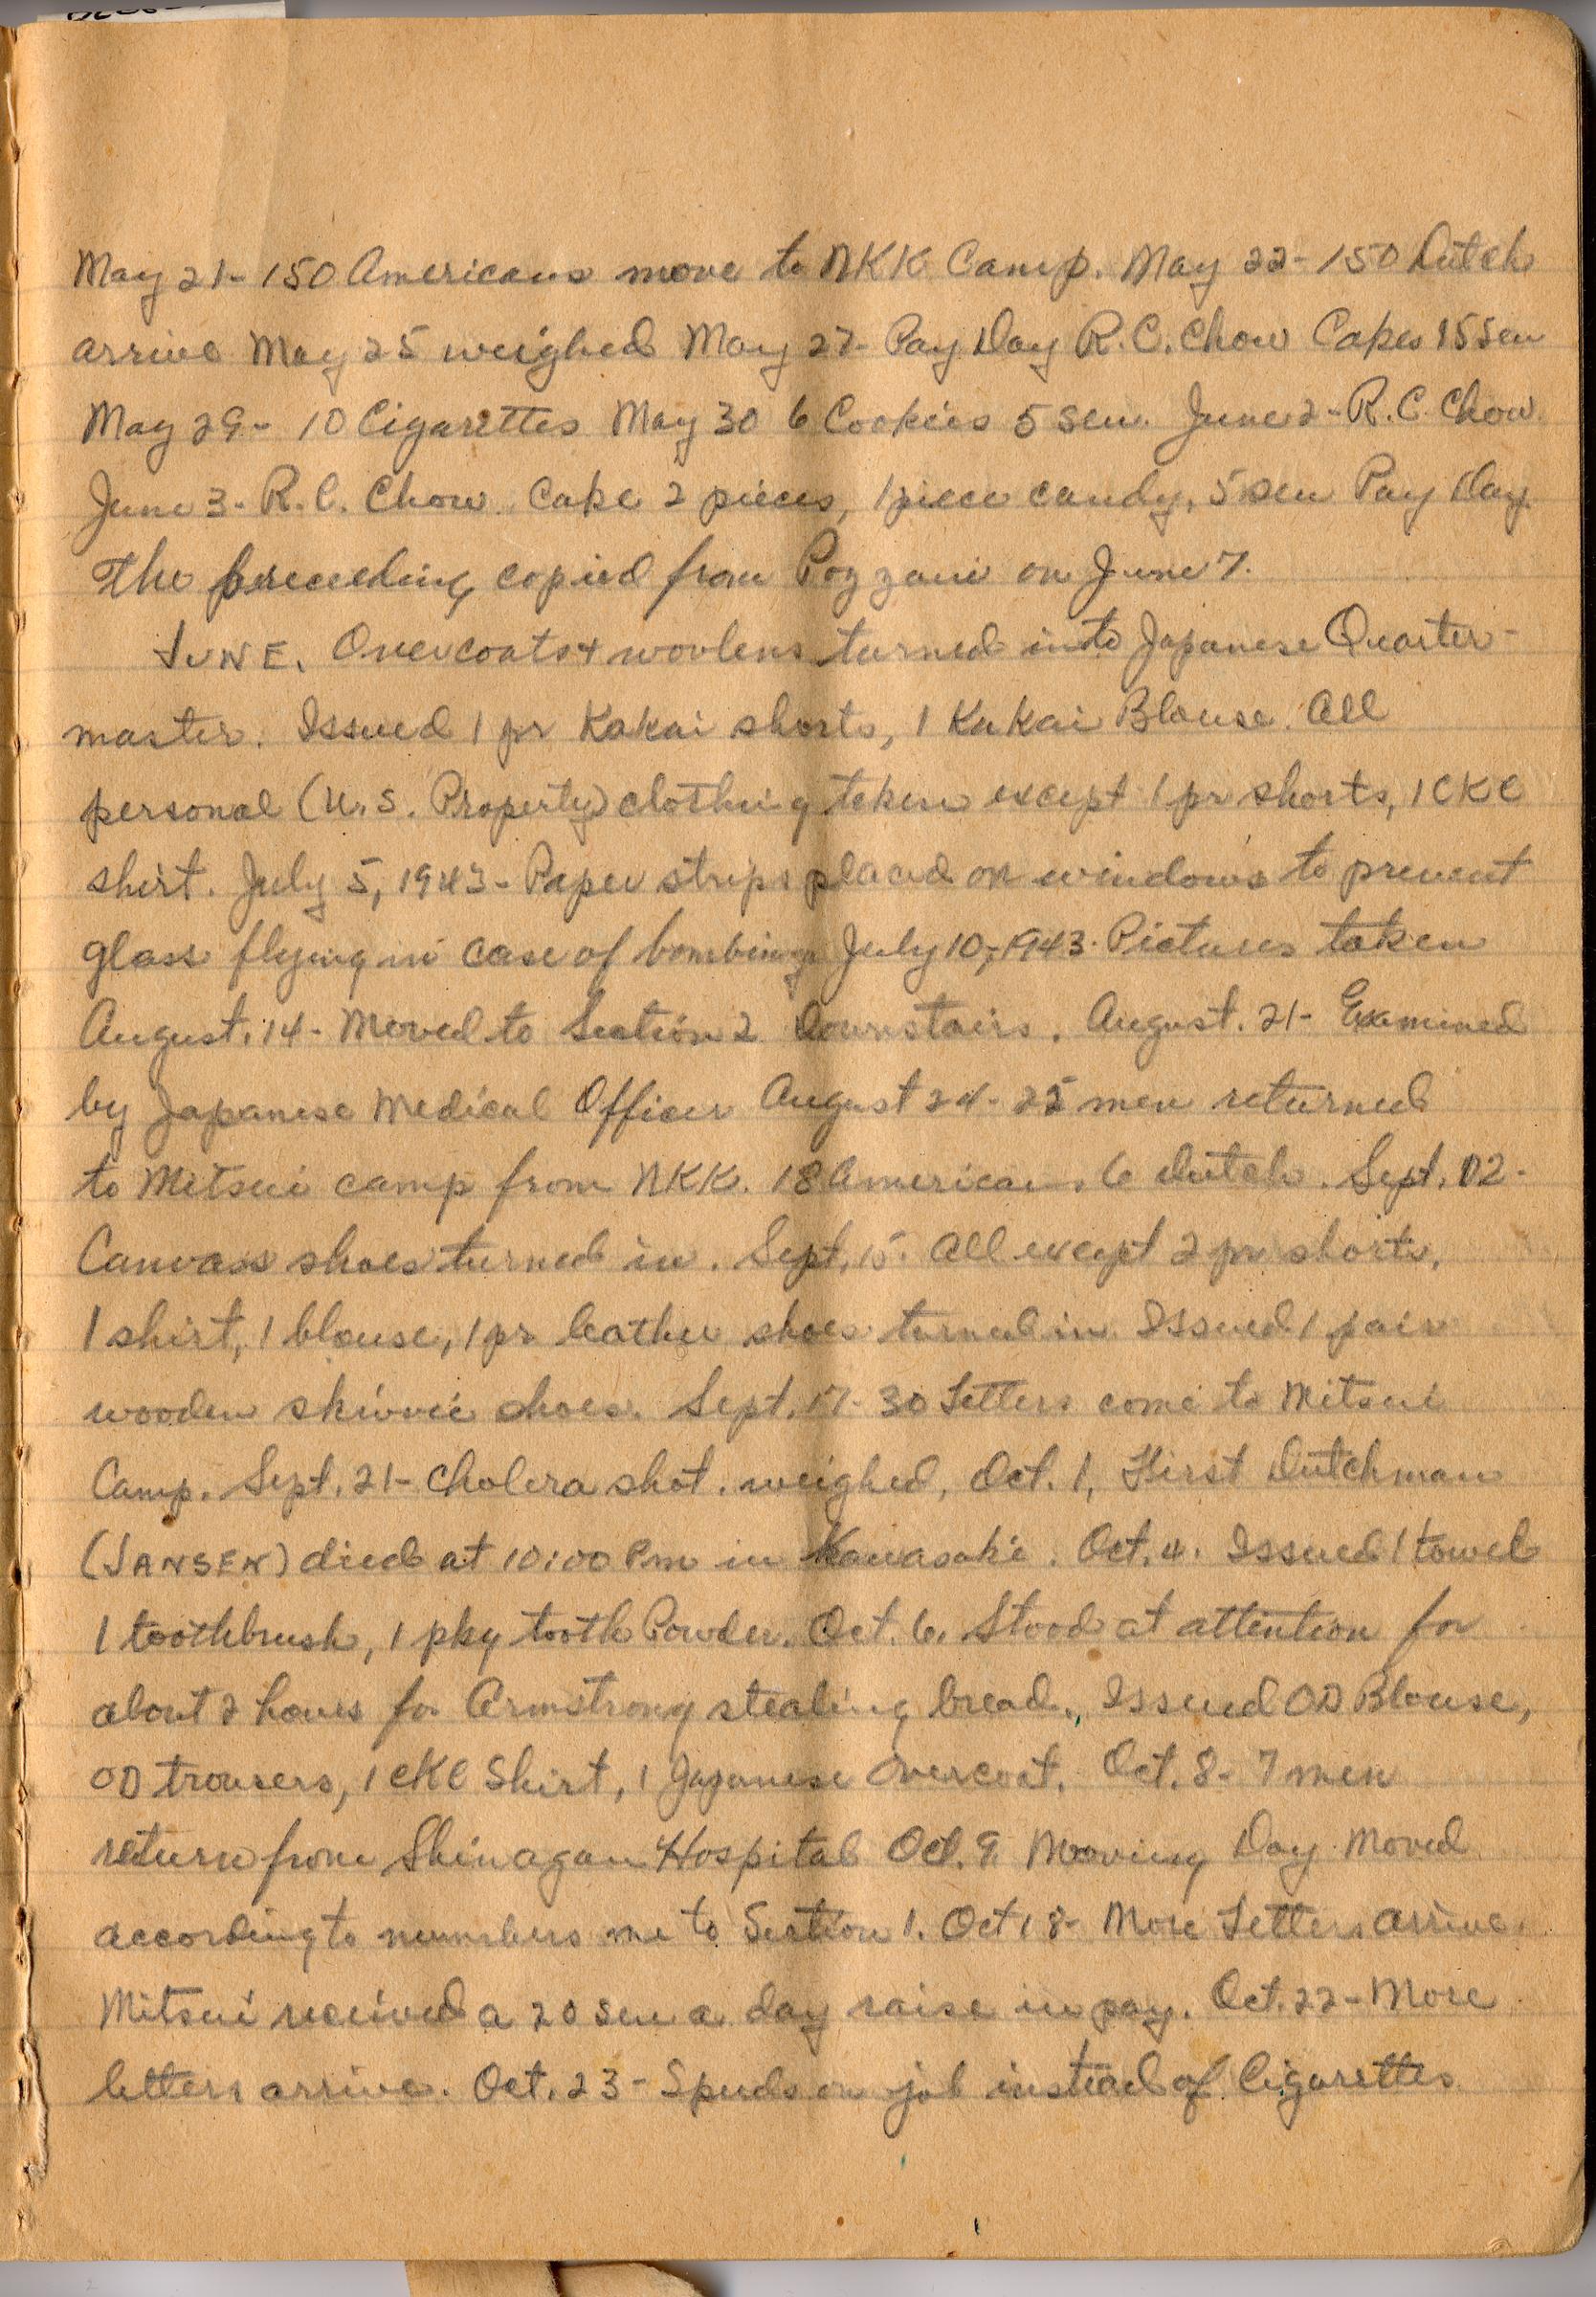 May 21- 150 Americans move to NKK Camp. May 22- 150 Dutch
arrive May 25 weighed May 27- Pay Day R.C. Chow Cakes 15 Sen
May 29- 10 Cigarettes May 30 6 Cookies 5 Sen. June 2- R.C. Chow
June 3- R.C. Chow. Cake 2 pieces, 1 piece candy, 5 sen Pay Day
The preceeding copied from Pozzani on June 7.
JUNE. Overcoats + woolens turned in to Japanese Quarter-
master. Issued 1 pr Kakai shorts, 1 Kakai Blouse. All
personal (U.S. Property) clothing taken except 1 pr shorts, 1 CKC
shirt. July 5, 1943- Paper strips placed on windows to prevent
glass flying in case of bombing July 10, 1943. Pictures taken
August. 14- Moved to Section 2 Downstairs. August. 21- Examined
by Japanese Medical Officer August 24- 25 men returned
to Mitsui camp from NKK. 18 American. 6 Dutch. Sept. 12-
Canvass shoes turned in. Sept. 15. All except 2 pr shorts,
1 shirt, 1 blouse, 1 pr leather shoes turned in Issued 1 pair
wooden skivvie shoes. Sept. 17- 30 Letters come to Mitsui
Camp. Sept. 21- Cholera shot. weighed, Oct. 1, First Dutchman
(JANSEN) died at 10:00 Pm in Kawasaki. Oct. 4. Issued 1 towel
1 toothbrush, 1 pkg tooth Powder. Oct. 6. Stood at attention for
about 2 hours for Armstrong stealing bread. Issued OD Blouse,
OD trousers, 1 CKC Shirt, 1 Japanese Overcoat. Oct. 8- 7 men
return from Shinagau Hospital Oct. 9 Moving Day. Moved
according to numbers me to Section 1. Oct 18- More Letters arrive.
Mitsui received a 20 sen a day raise in pay. Oct. 22- More
letters arrive. Oct. 23- Spuds on job instead of Cigarettes